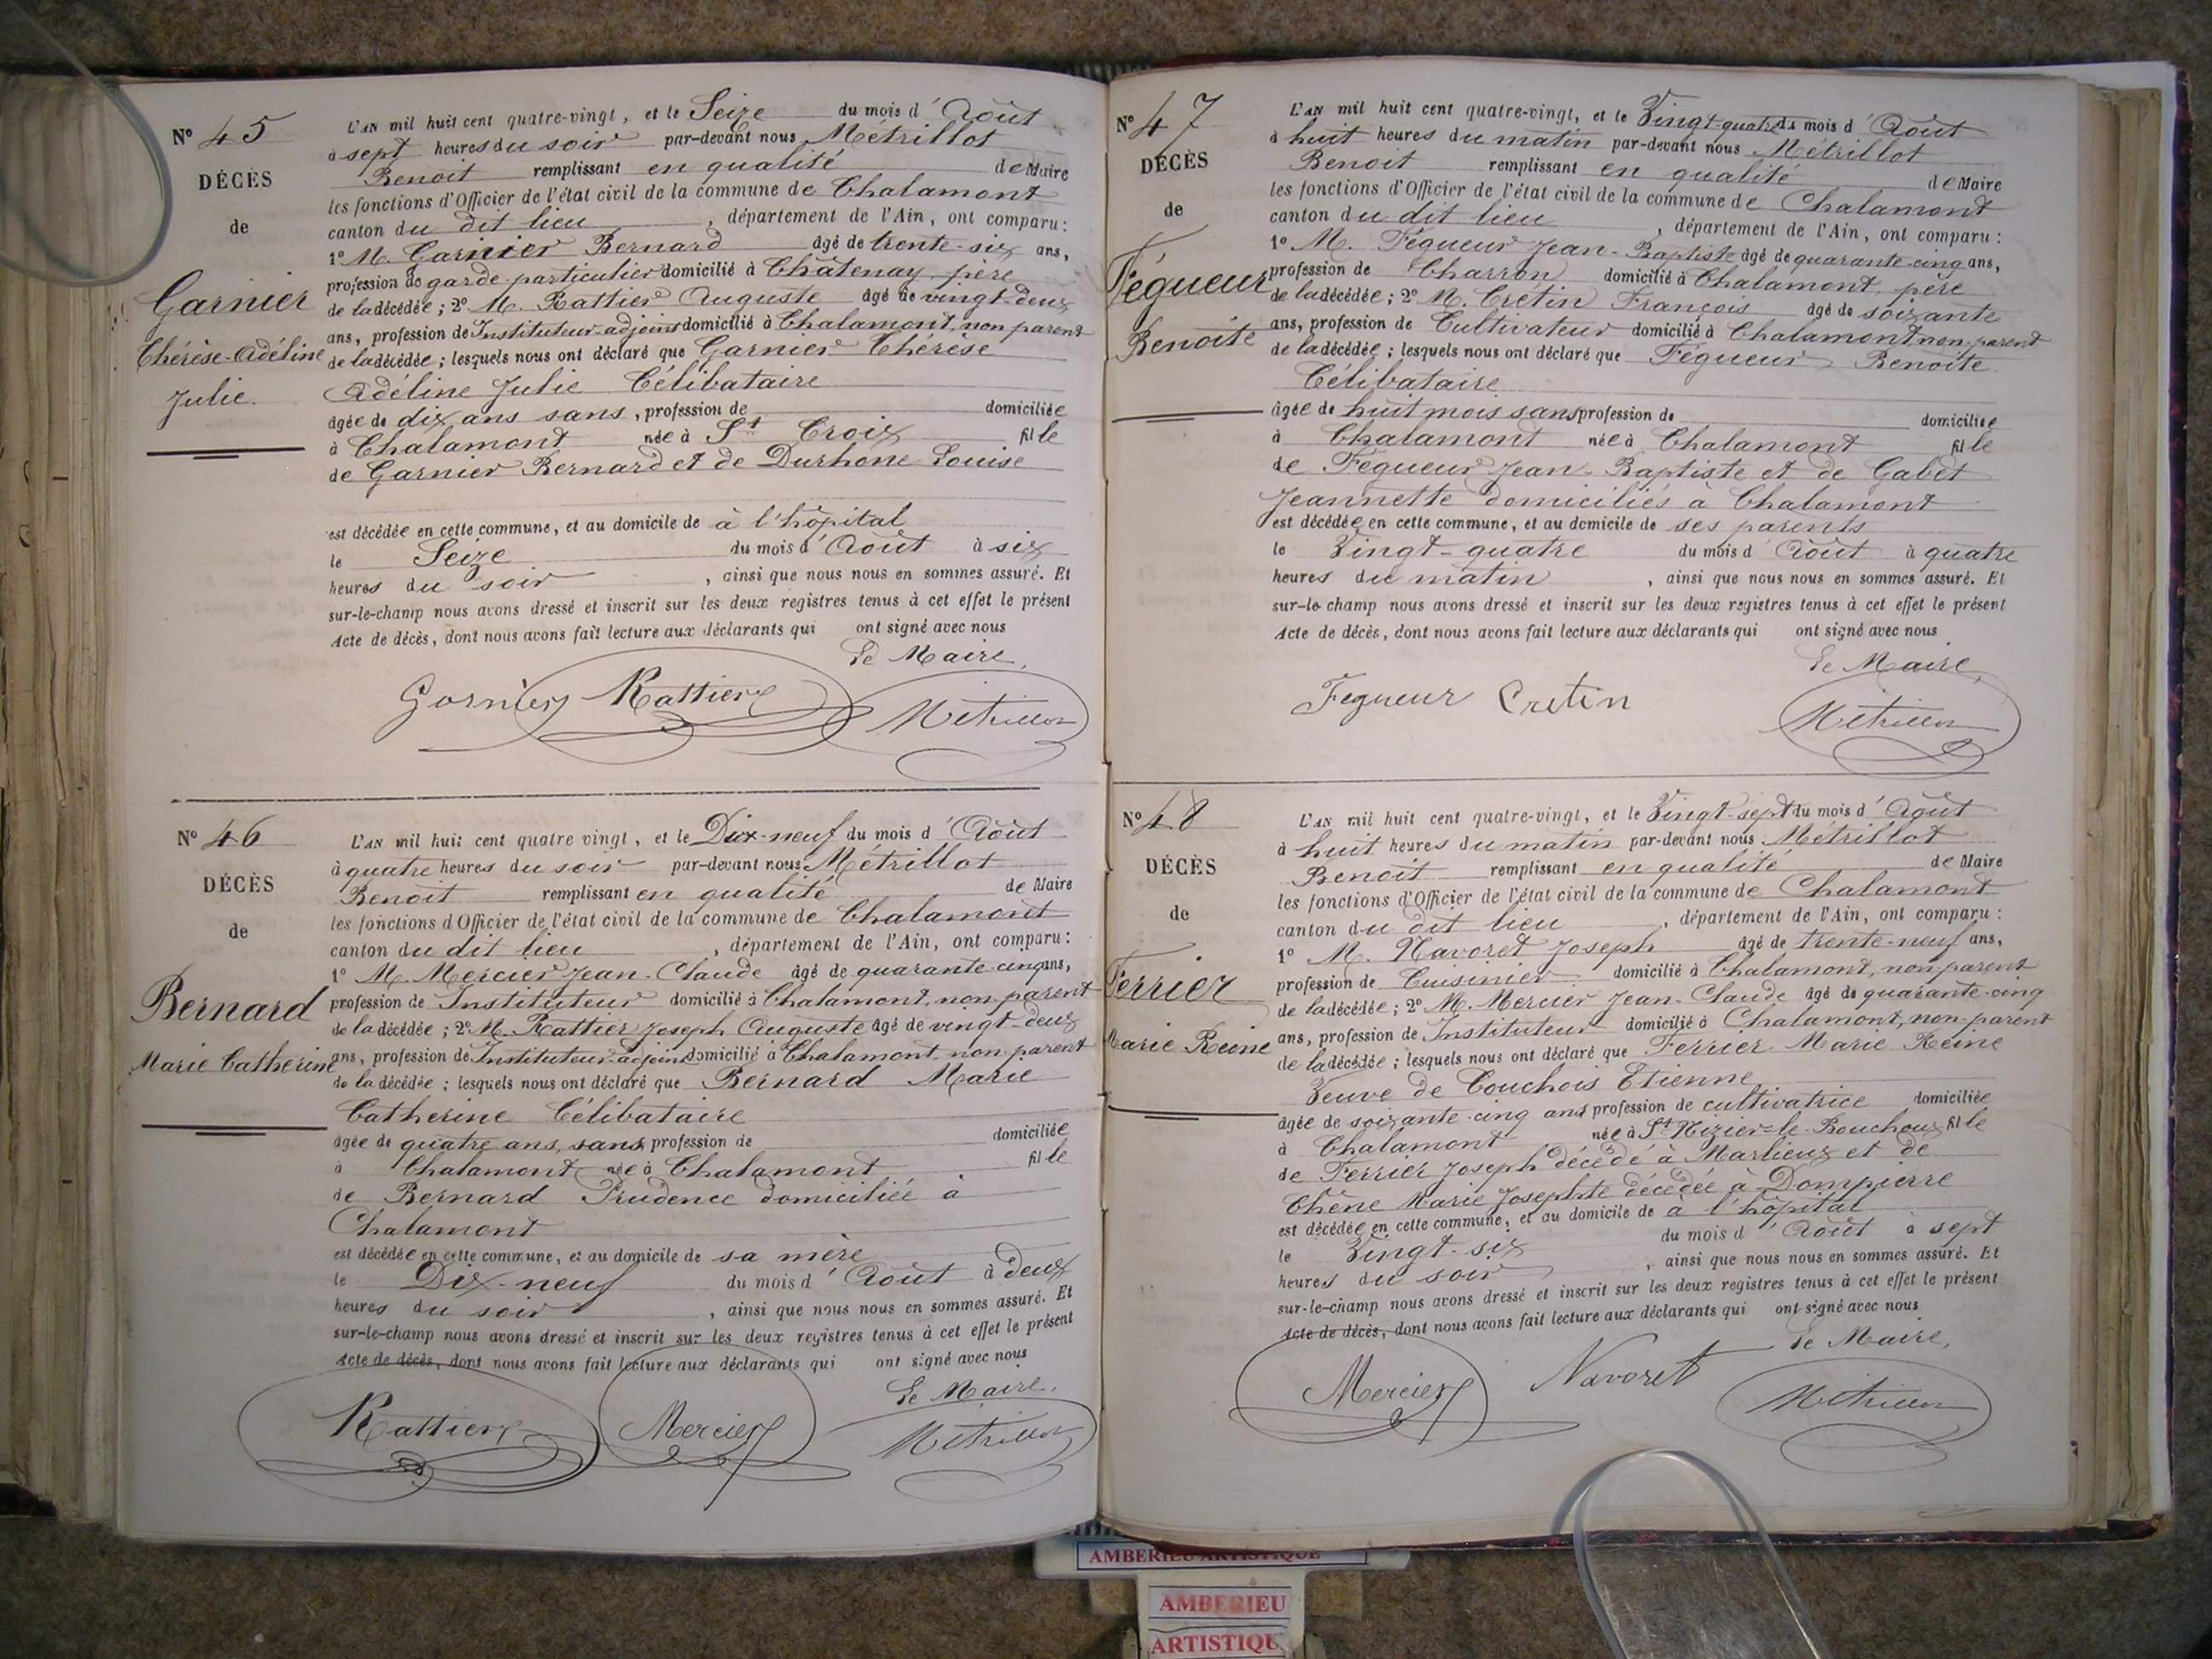 N° 45
DÉCÈS
de
Garnier
Thérèse-Adéline
Julie.
L'AN mil huit cent quatre-vingt, et le Seize du mois d'Août
à sept heures du soir par-devant nous Métrillot
Benoit remplissant en qualité de Maire
les fonctions d'Officier de l'état civil de la commune de Chalamont
canton du dit lieu, département de l'Ain, ont comparu:
1° M. Garnier Bernard âgé de trente-six ans,
profession de garde-particulier domicilié à Châtenay, père
de la décédée; 2° M. Rattier Auguste âgé de vingt-deux
ans, profession de Instituteur-adjoint domicilié à Chalamont, non parent
de la décédée; lesquels nous ont déclaré que Garnier Thérèse
Adéline Julie Célibataire
âgée de dix ans sans, profession de domiciliée
à Chalamont née à St Croix fille
de Garnier Bernard et de Durhone Louise
est décédée en cette commune, et au domicile de à l'hôpital
le Seize du mois d'Août à six
heures du soir, ainsi que nous nous en sommes assuré. Et
sur-le-champ nous avons dressé et inscrit sur les deux registres tenus à cet effet le présent
Acte de décès, dont nous avons fait lecture aux déclarants qui ont signé avec nous
Le Maire,
Garnier Rattier Métrillot
N° 46
DÉCÈS
de
Bernard
Marie Catherine
L'AN mil huit cent quatre vingt, et le Dix-neuf du mois d'Août
à quatre heures du soir par-devant nous Métrillot
Benoit remplissant en qualité de Maire
les fonctions d'Officier de l'état civil de la commune de Chalamont
canton du dit lieu, département de l'Ain, ont comparu:
1° M. Mercier Jean-Claude âgé de quarante-cinq ans,
profession de Instituteur domicilié à Chalamont, non-parent
de la décédée; 2° M. Rattier Joseph Auguste âgé de vingt-deux
ans, profession de Instituteur-adjoint domicilié à Chalamont, non parent
de la décédée; lesquels nous ont déclaré que Bernard Marie
Catherine Célibataire
âgée de quatre ans, sans profession de domiciliée
à Chalamont née à Chalamont fille
de Bernard Prudence domiciliée à
Chalamont
est décédée en cette commune, et au domicile de sa mère
le Dix-neuf du mois d'Août à deux
heures du soir, ainsi que nous nous en sommes assuré. Et
sur-le-champ nous avons dressé et inscrit sur les deux registres tenus à cet effet le présent
Acte de décès, dont nous avons fait lecture aux déclarants qui ont signé avec nous
Le Maire.
Rattier Mercier Métrillot
N° 47
DÉCÈS
de
Fégueur
Benoite
L'AN mil huit cent quatre-vingt, et le Vingt-quatre du mois d'Août
à huit heures du matin par-devant nous Métrillot
Benoit remplissant en qualité de Maire
les fonctions d'Officier de l'état civil de la commune de Chalamont
canton du dit lieu, département de l'Ain, ont comparu:
1° M. Fégueur Jean-Baptiste âgé de quarante-cinq ans,
profession de Charron domicilié à Chalamont, père
de la décédée; 2° M. Crétin François âgé de soixante
ans, profession de Cultivateur domicilié à Chalamont non-parent
de la décédée; lesquels nous ont déclaré que Fégueur Benoite
Célibataire
âgée de huit mois sans profession de domiciliée
à Chalamont née à Chalamont fille
de Fégueur Jean-Baptiste et de Gabet
Jeannette domiciliés à Chalamont
est décédée en cette commune, et au domicile de ses parents
le Vingt-quatre du mois d'Août à quatre
heures du matin, ainsi que nous nous en sommes assuré. Et
sur-le-champ nous avons dressé et inscrit sur les deux registres tenus à cet effet le présent
Acte de décès, dont nous avons fait lecture aux déclarants qui ont signé avec nous
Le Maire,
Fegueur Cretin Métrillot
N° 48
DÉCÈS
de
Ferrier
Marie Reine
L'AN mil huit cent quatre-vingt, et le Vingt-sept du mois d'Août
à huit heures du matin par-devant nous Métrillot
Benoit remplissant en qualité de Maire
les fonctions d'Officier de l'état civil de la commune de Chalamont
canton du dit lieu, département de l'Ain, ont comparu:
1° M. Navoret Joseph âgé de trente-neuf ans,
profession de Cuisinier domicilié à Chalamont, non-parent
de la décédée; 2° M. Mercier Jean-Claude âgé de quarante-cinq
ans, profession de Instituteur domicilié à Chalamont, non-parent
de la décédée; lesquels nous ont déclaré que Ferrier Marie Reine
Veuve de Couchois Etienne
âgée de soixante-cinq ans profession de cultivatrice domiciliée
à Chalamont née à St Nizier-le-Bouchoux fille
de Ferrier Joseph décédé à Marlieux et de
Chêne Marie Josephte décédée à Dompierre
est décédée en cette commune, et au domicile de à l'hôpital
le Vingt-six du mois d'Août à sept
heures du soir, ainsi que nous nous en sommes assuré. Et
sur-le-champ nous avons dressé et inscrit sur les deux registres tenus à cet effet le présent
Acte de décès, dont nous avons fait lecture aux déclarants qui ont signé avec nous
Le Maire,
Mercier Navoret Métrillot
AMBERIEU ARTISTIQUE
AMBERIEU
ARTISTIQU